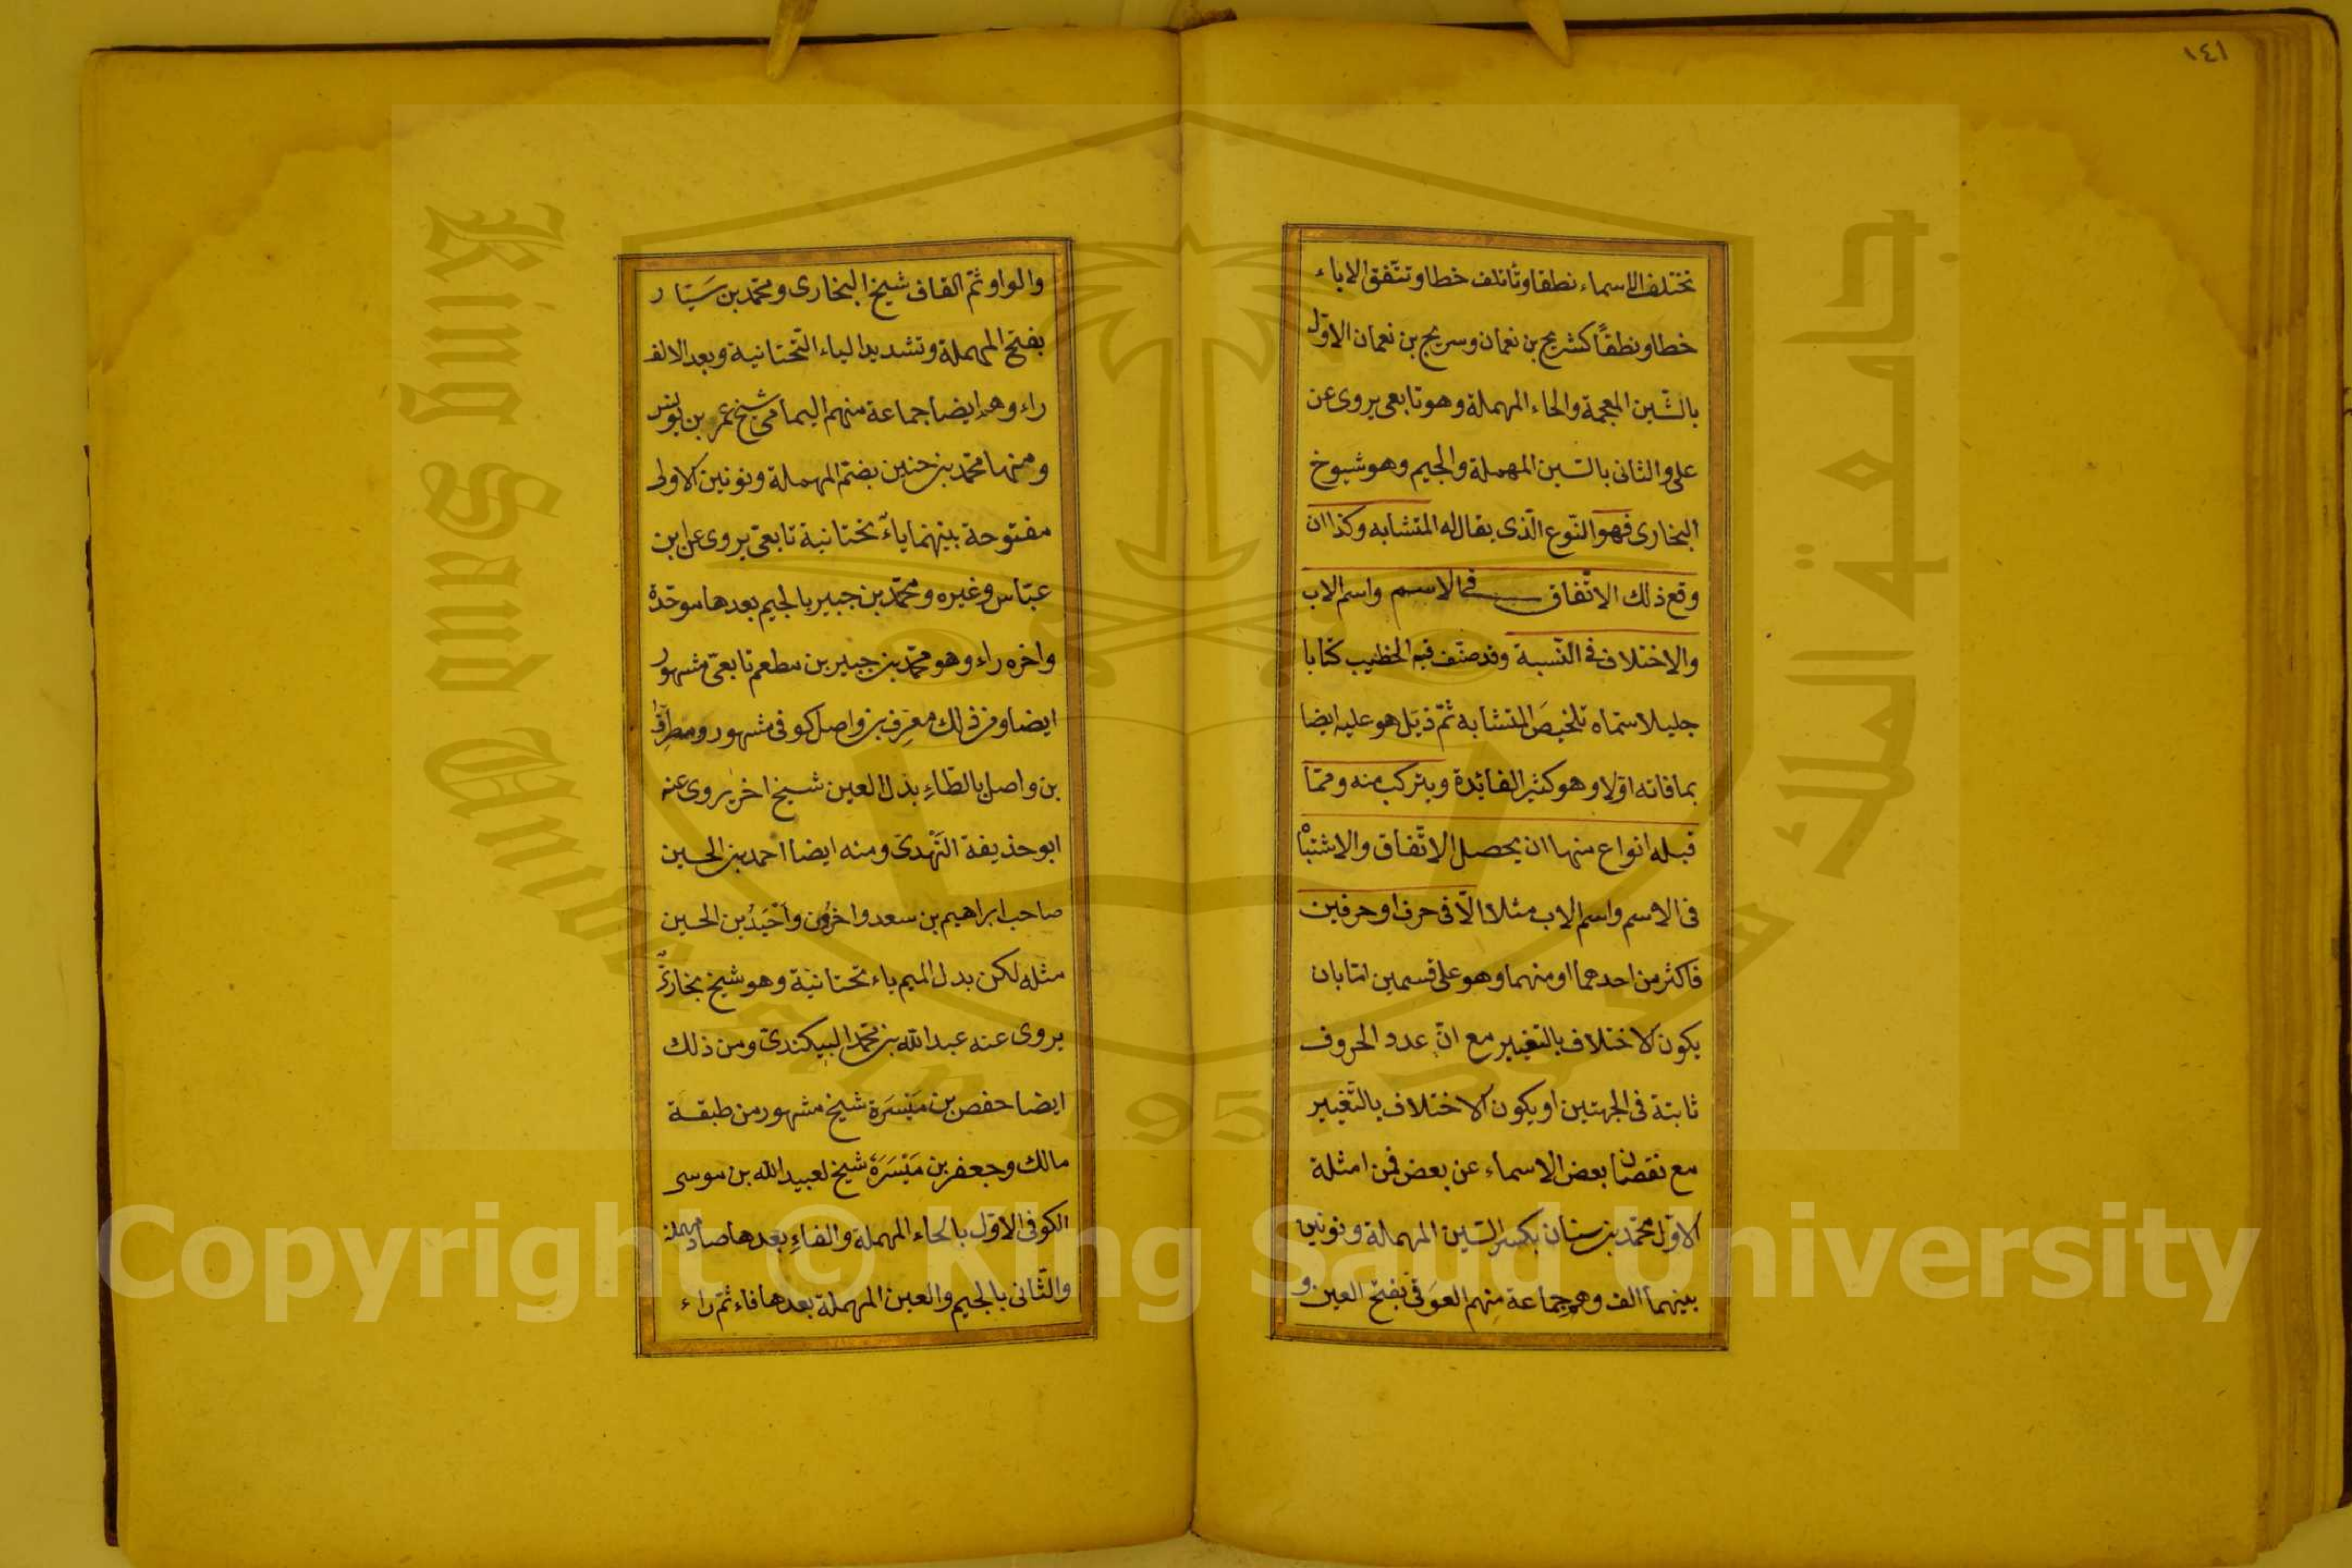 ١٤١
تختلف الاسماء نطقا وتأتلف خطا وتتفق الاباء
خطا ونطقًا كشريح بن نعمان وسريج بن نعمان الاوّل
بالشّين المعجمة والحاء المهملة وهو تابعى يروى عن
على والثانى بالسّين المهملة والجيم وهو شيوخ
البخارى فهو النّوع الّذى يقال له المتشابه وكذا ان
وقع ذلك الاتّفاق فى الاسم واسم الاب
والاختلاف فى النّسبة وقد صنّف فيه الخطيب كتابا
جليلا سمّاه تلخيصَ المتشابه ثمّ ذيّل هو عليه ايضا
بما فاته اوّلا وهو كثير الفائدة ويتركب منه وممّا
قبله انواع منها ان يحصل الاتّفاق والاشتباه
فى الاسم واسم الاب مثلا الّا فى حرف او حرفين
فاكثر من احدهما او منهما وهو على قسمين امّا بان
يكون الاختلاف بالتّغيير مع انّ عدد الحروف
ثابتة فى الجهتين او يكون الاختلاف بالتّغيير
مع نقصان بعض الاسماء عن بعض فمن امثلة
الاوّل محمّد بن سنان بكسر السّين المهملة ونونين
بينهما الف وهم جماعة منهم العوَقى بفتح العين و
والواو ثمّ القاف شيخ البخارى ومحمّد بن سَيّار
بفتح المهملة وتشديد الياء التّحتانية وبعد الالف
راء وهم ايضا جماعة منهم اليمامى شيخ عمر بن يونس
ومنها محمّد بن حنين بضمّ المهملة ونونين الاولى
مفتوحة بينهما ياء تحتانية تابعى يروى عن ابن
عبّاس وغيره ومحمّد بن جبير بالجيم بعدها موحّدة
واخره راء وهو محمّد بن جبير بن مطعم تابعىّ مشهور
ايضا ومن ذلك معرِف بن واصل كوفى مشهور ومطرِف
بن واصل بالطّاءِ بدل العين شيخ اخر يروى عنه
ابو حذيفة النَّهدىّ ومنه ايضا احمد بن الحسين
صاحب ابراهيم بن سعد واخرون وأَحْيَدُ بن الحسين
مثله لكن بدل الميم ياء تحتانيّة وهو شيخ بخارىّ
يروى عنه عبد الله بن محمّد البيكندىّ ومن ذلك
ايضا حفص بن مَيْسَرَة شيخ مشهور من طبقة
مالك وجعفر بن مَيْسَرَة شيخ لعبيد الله بن موسى
الكوفى الاوّل بالحاء المهملة والفاءِ بعدها صاد مهملة
والثّانى بالجيم والعين المهملة بعدها فاء ثمّ راء
King Saud University
جامعة الملك سعود
1957
Copyright © King Saud University